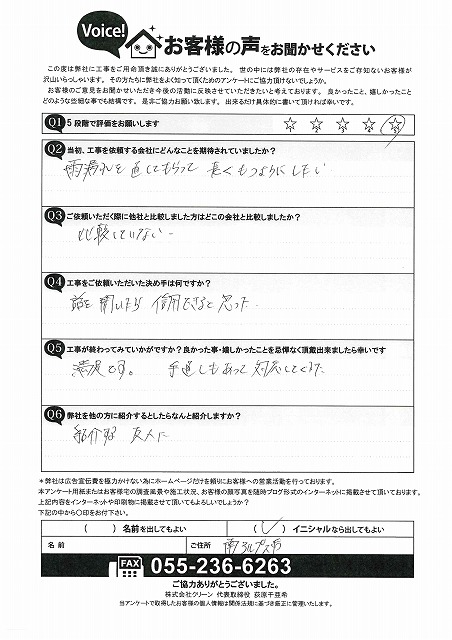 Voice!
お客様の声をお聞かせください
この度は弊社に工事をご用命頂き誠にありがとうございました。 世の中には弊社の存在やサービスをご存知ないお客様が
沢山いらっしゃいます。 その方たちに弊社をよく知って頂くためのアンケートにご協力頂けないでしょうか。
お客様のご意見をお聞かせいただき今後の活動に反映させていただきたいと考えております。 良かったこと、嬉しかったこと
どのような些細な事でも結構です。 是非ご協力お願い致します。 出来るだけ具体的に書いて頂ければ幸いです。
Q1 5段階で評価をお願いします ☆ ☆ ☆ ☆ ☆
Q2 当初、工事を依頼する会社にどんなことを期待されていましたか?
雨漏れを直してもらって 長くもつようにしたい
Q3 ご依頼いただく際に他社と比較しました方はどこの会社と比較しましたか?
比較していない
Q4 工事をご依頼いただいた決め手は何ですか?
話を聞いたら 信用できると思った
Q5 工事が終わってみていかがですか?良かった事・嬉しかったことを忌憚なく頂戴出来ましたら幸いです
満足です。 手直しもあって対応してくれた
Q6 弊社を他の方に紹介するとしたらなんと紹介しますか?
紹介する 友人に
*弊社は広告宣伝費を極力かけない為にホームページだけを頼りにお客様への営業活動を行っております。
本アンケート用紙またはお客様宅の調査風景や施工状況、お客様の顔写真を随時ブログ形式のインターネットに掲載させて頂いております。
上記内容をインターネットや印刷物に掲載させて頂いてもよろしいでしょうか?
下記の中から〇印をお付下さい。
( ) 名前を出してもよい ( ✓ ) イニシャルなら出してもよい
名 前 ご住所 南アルプス市
FAX 055-236-6263
ご協力ありがとうございました。
株式会社クリーン 代表取締役 荻原千亜希
当アンケートで取得したお客様の個人情報は関係法規に基づき厳正に管理いたします。